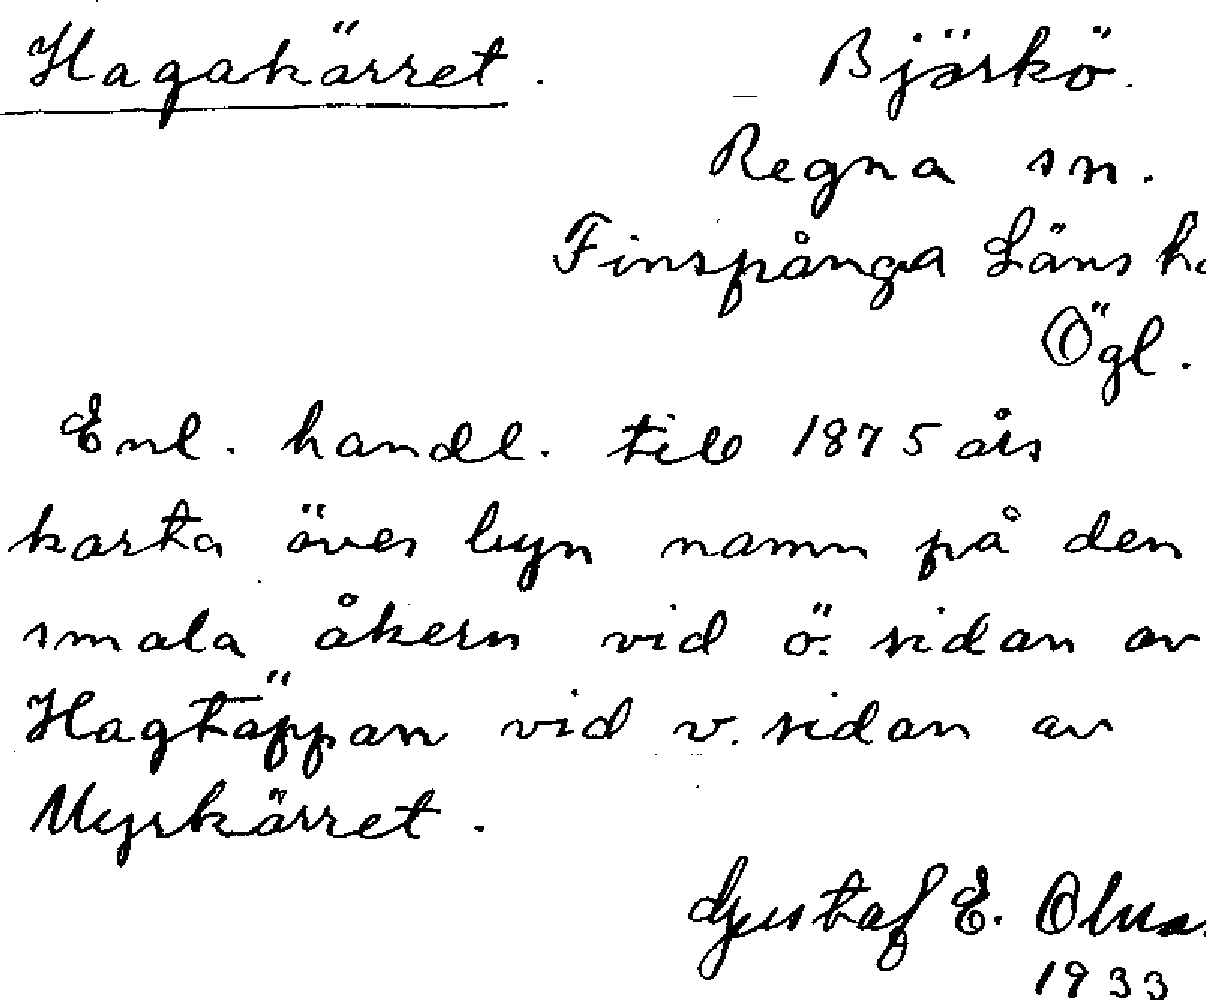 Hagakärret. Björkö.
Regna sn.
Finspånga Läns
Ögl.
Enl. handl. till 1875 års
karta över byn namn på den
smala åkern vid ö. sidan av
Hagtäppan vid v. sidan av
Myrkärret.
Gustaf E.
1933